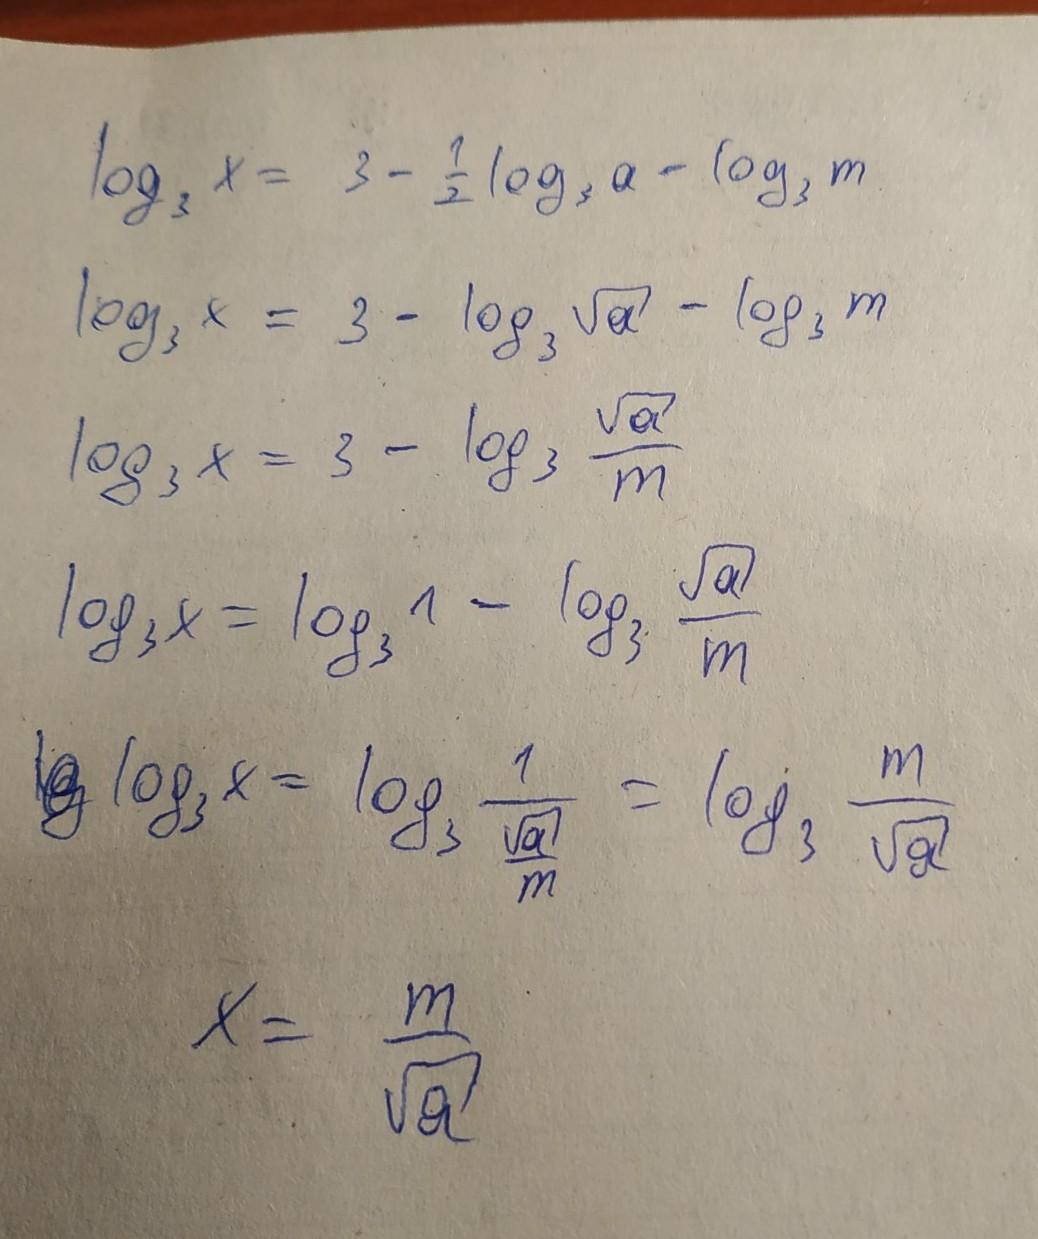 log₃ x = 3 - 1/2 log₃ a - log₃ m
log₃ x = 3 - log₃ √a - log₃ m
log₃ x = 3 - log₃ √a/m
log₃ x = log₃ 1 - log₃ √a/m
log₃ x = log₃ 1/(√a/m) = log₃ m/√a
x = m/√a